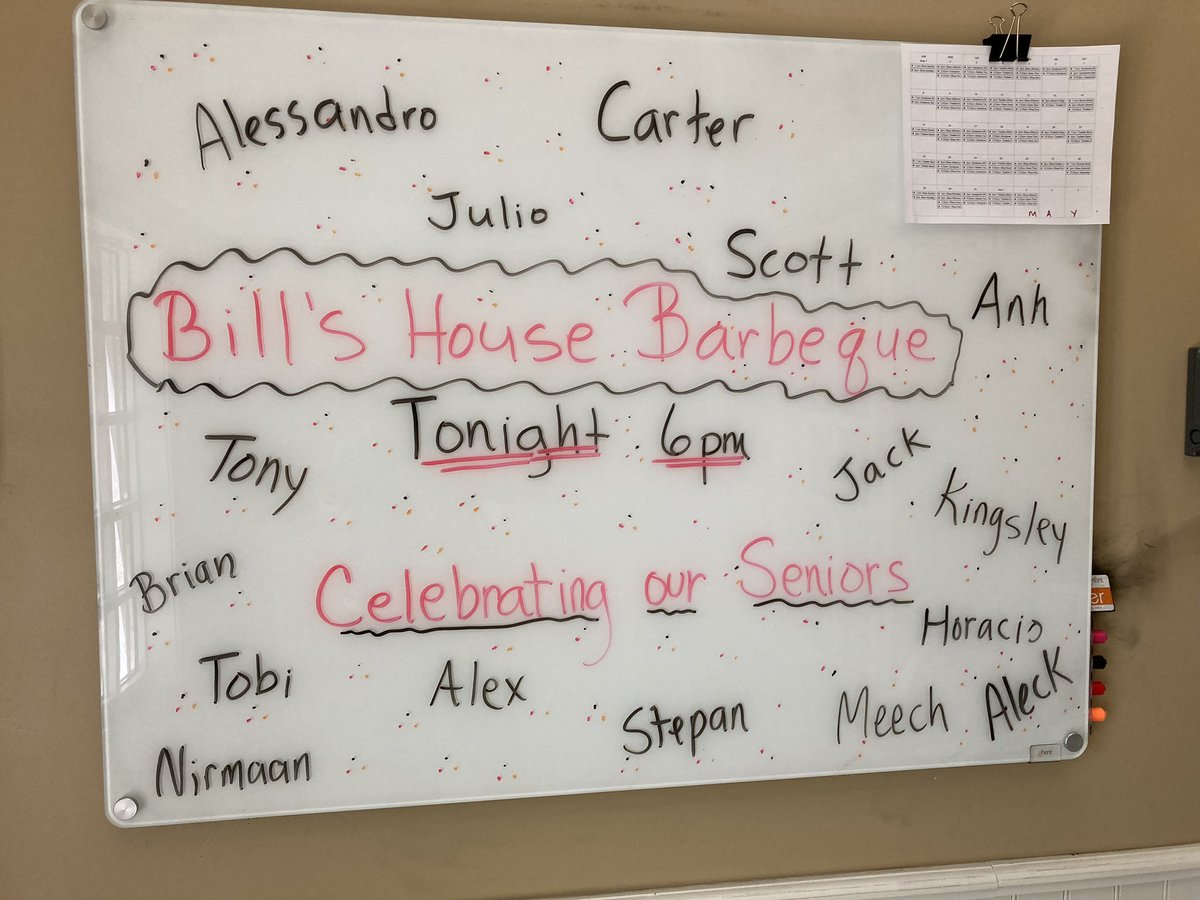 Alessandro
Carter
Julio
Scott
Anh
Bill's House Barbeque
Tonight 6pm
Tony
Jack
Kingsley
Brian
Celebrating our Seniors
Horacio
Tobi
Alex
Aleck
Meech
Stepan
Nirmaan
MAY